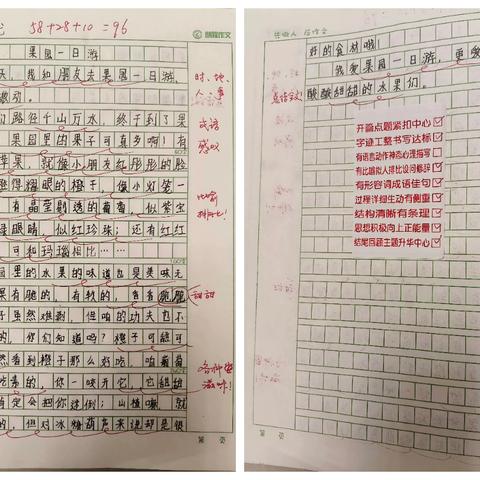 58+28+10=96
果园一日游
天,我和朋友去果园一日游,
激动。
们路径千山万水,终于到了果
果园里的果子可真多啊!有
苹果,就像小朋友红彤彤的脸
橙得耀眼的橙子,像小灯笼一
有晶莹剔透的葡萄,似紫宝
眼睛,似红珍珠;还有红红
可和玛瑙相比……
园里的水果的味道也是美味无
果有脆的,有软的,
子虽然难剥,但咱的功夫也不
的,你们知道吗?橙子可能可
然看到橙子那么好吃,咱葡萄
吃素的,你一咬开它,它甜甜
定会把你迷倒;山楂嘛,就
的,但对冰糖葫芦来说却是很
时、地、
人、事
成语
感叹
比喻
排比!
甜甜
各种
滋味!
第 页
作文
好的食材哦!
我爱果园一日游,更爱
酸酸甜甜的水果们。
点话主义!
开篇点题紧扣中心
字迹工整书写达标
有语言动作神态心理描写
有比喻拟人排比设问修辞
有形容词成语佳句
过程详细生动有侧重
结构清晰有条理
思想积极向上正能量
结尾回题主题升华中心
第 页